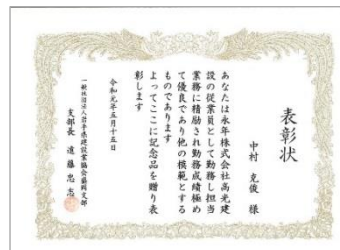 表彰状
中村 克俊 様
あなたは永年株式会社高光建
設の従業員として勤務し担当
業務に精励され勤務成績極め
て優良であり他の模範とする
ものであります
よってここに記念品を贈り表
彰します
令和元年五月十五日
一般社団法人岩手県建設業協会盛岡支部
支部長 遠藤忠志